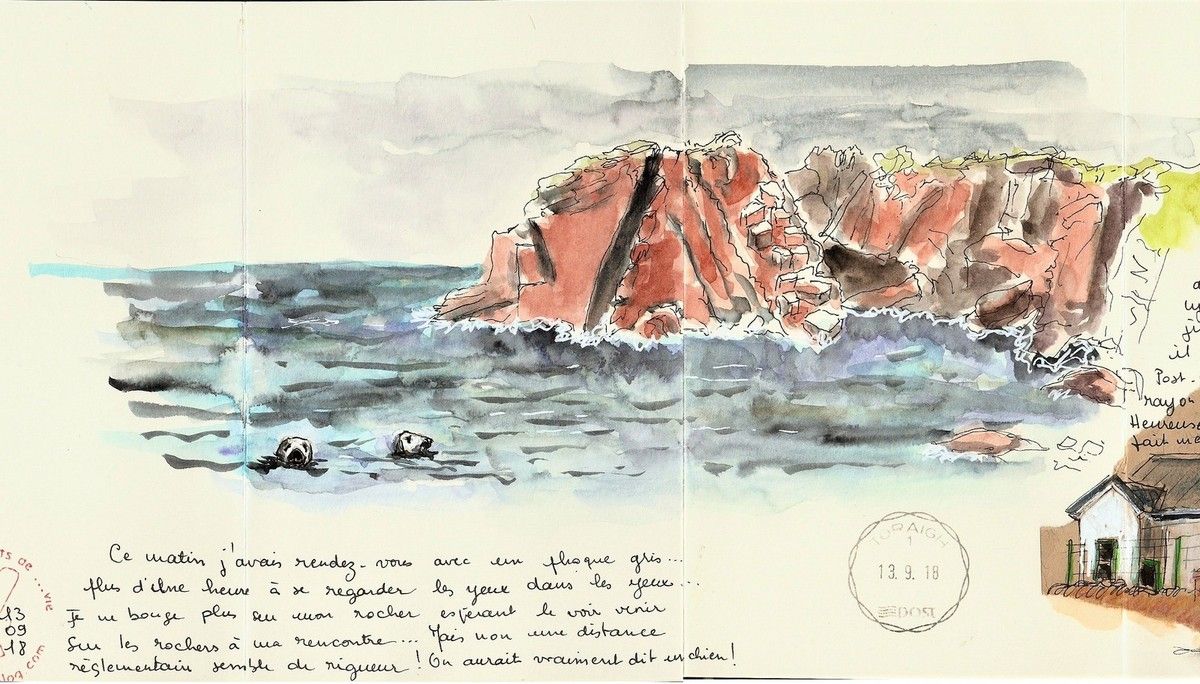 a
il
Post-
rayon
Heureuse
fait me
TORAIGH
1
13.9.18
POST
Ce matin j'avais rendez-vous avec un phoque gris...
plus d'une heure à se regarder les yeux dans les yeux...
Je ne bouge plus sur mon rocher espérant le voir venir
sur les rochers à ma rencontre... Mais non une distance
règlementaire semble de rigueur ! On aurait vraiment dit un chien !
TS DE ...VIE
13
09
18
log.com